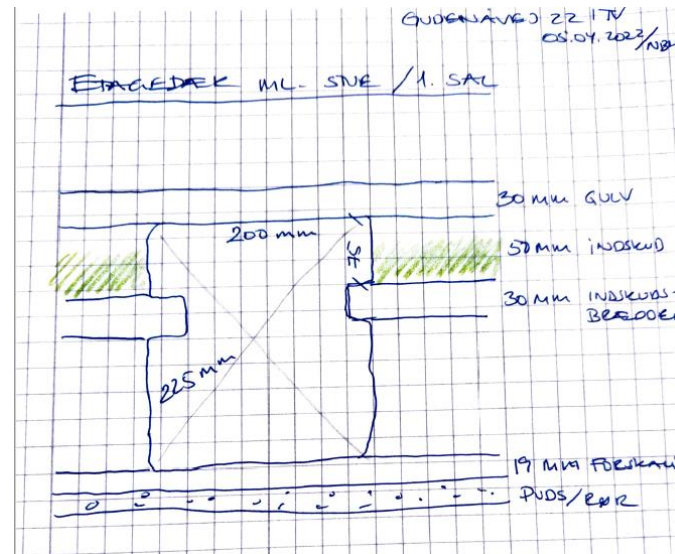 GUDENÅVEJ 22 1TV
05.04.2022/NBH
ETAGEDÆK ML. STUE / 1. SAL
30 mm GULV
200 mm
50 mm INDSKUD
75
30 mm INDSKUDS-
BRÆDDER
225 mm
19 MM FORSKALL
PUDS/RØR